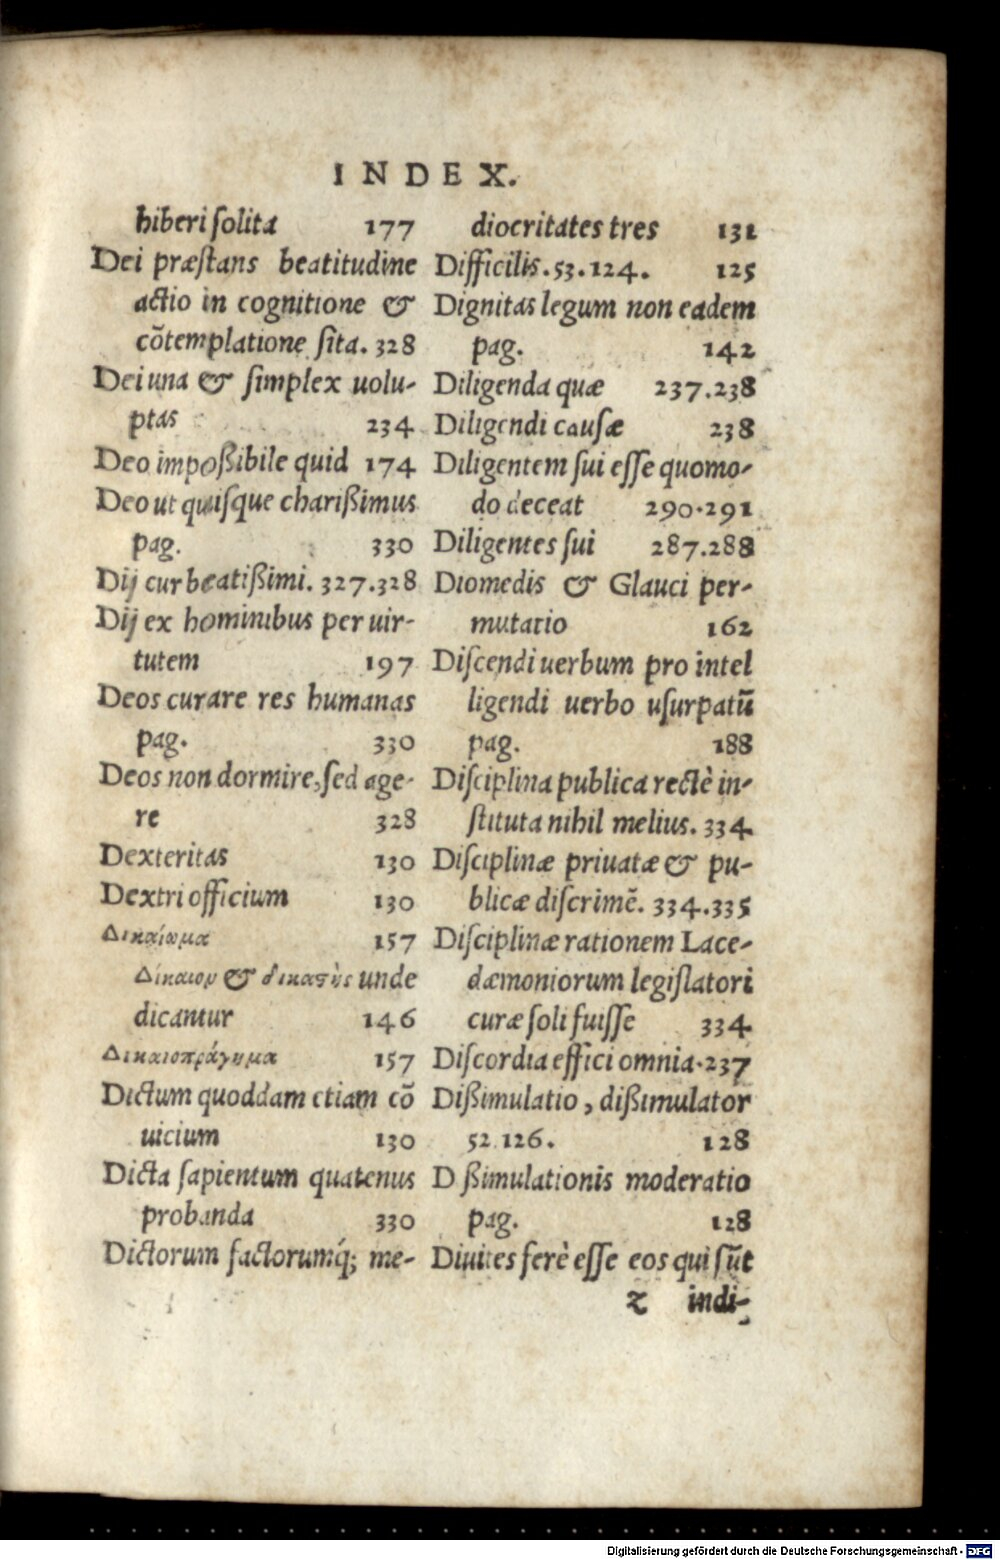 INDEX.
hiberi solita 177
Dei præstans beatitudine
actio in cognitione &
cõtemplatione sita. 328
Dei una & simplex uolu-
ptas 234
Deo impoßibile quid 174
Deo ut quisque charißimus
pag. 330
Dij cur beatißimi. 327.328
Dij ex hominibus per uir-
tutem 197
Deos curare res humanas
pag. 330
Deos non dormire, sed age-
re 328
Dexteritas 130
Dextri officium 130
Δικαίωμα 157
Δίκαιον & δικαστὴς unde
dicantur 146
Δικαιοπράγημα 157
Dictum quoddam etiam cõ
uicium 130
Dicta sapientum quatenus
probanda 330
Dictorum factorumq́; me-
diocritates tres 131
Difficilis. 53. 124. 125
Dignitas legum non eadem
pag. 142
Diligenda quæ 237.238
Diligendi causæ 238
Diligentem sui esse quomo-
do deceat 290.291
Diligentes sui 287.288
Diomedis & Glauci per-
mutatio 162
Discendi uerbum pro intel
ligendi uerbo usurpatũ
pag. 188
Disciplina publica rectè in-
stituta nihil melius. 334
Disciplinæ priuatæ & pu-
blicæ discrimẽ. 334.335
Disciplinæ rationem Lace-
dæmoniorum legislatori
curæ soli fuisse 334
Discordia effici omnia. 237
Dißimulatio, dißimulator
52 126. 128
D ßimulationis moderatio
pag. 128
Diuites ferè esse eos qui sũt
z indi-
Digitalisierung gefördert durch die Deutsche Forschungsgemeinschaft - DFG